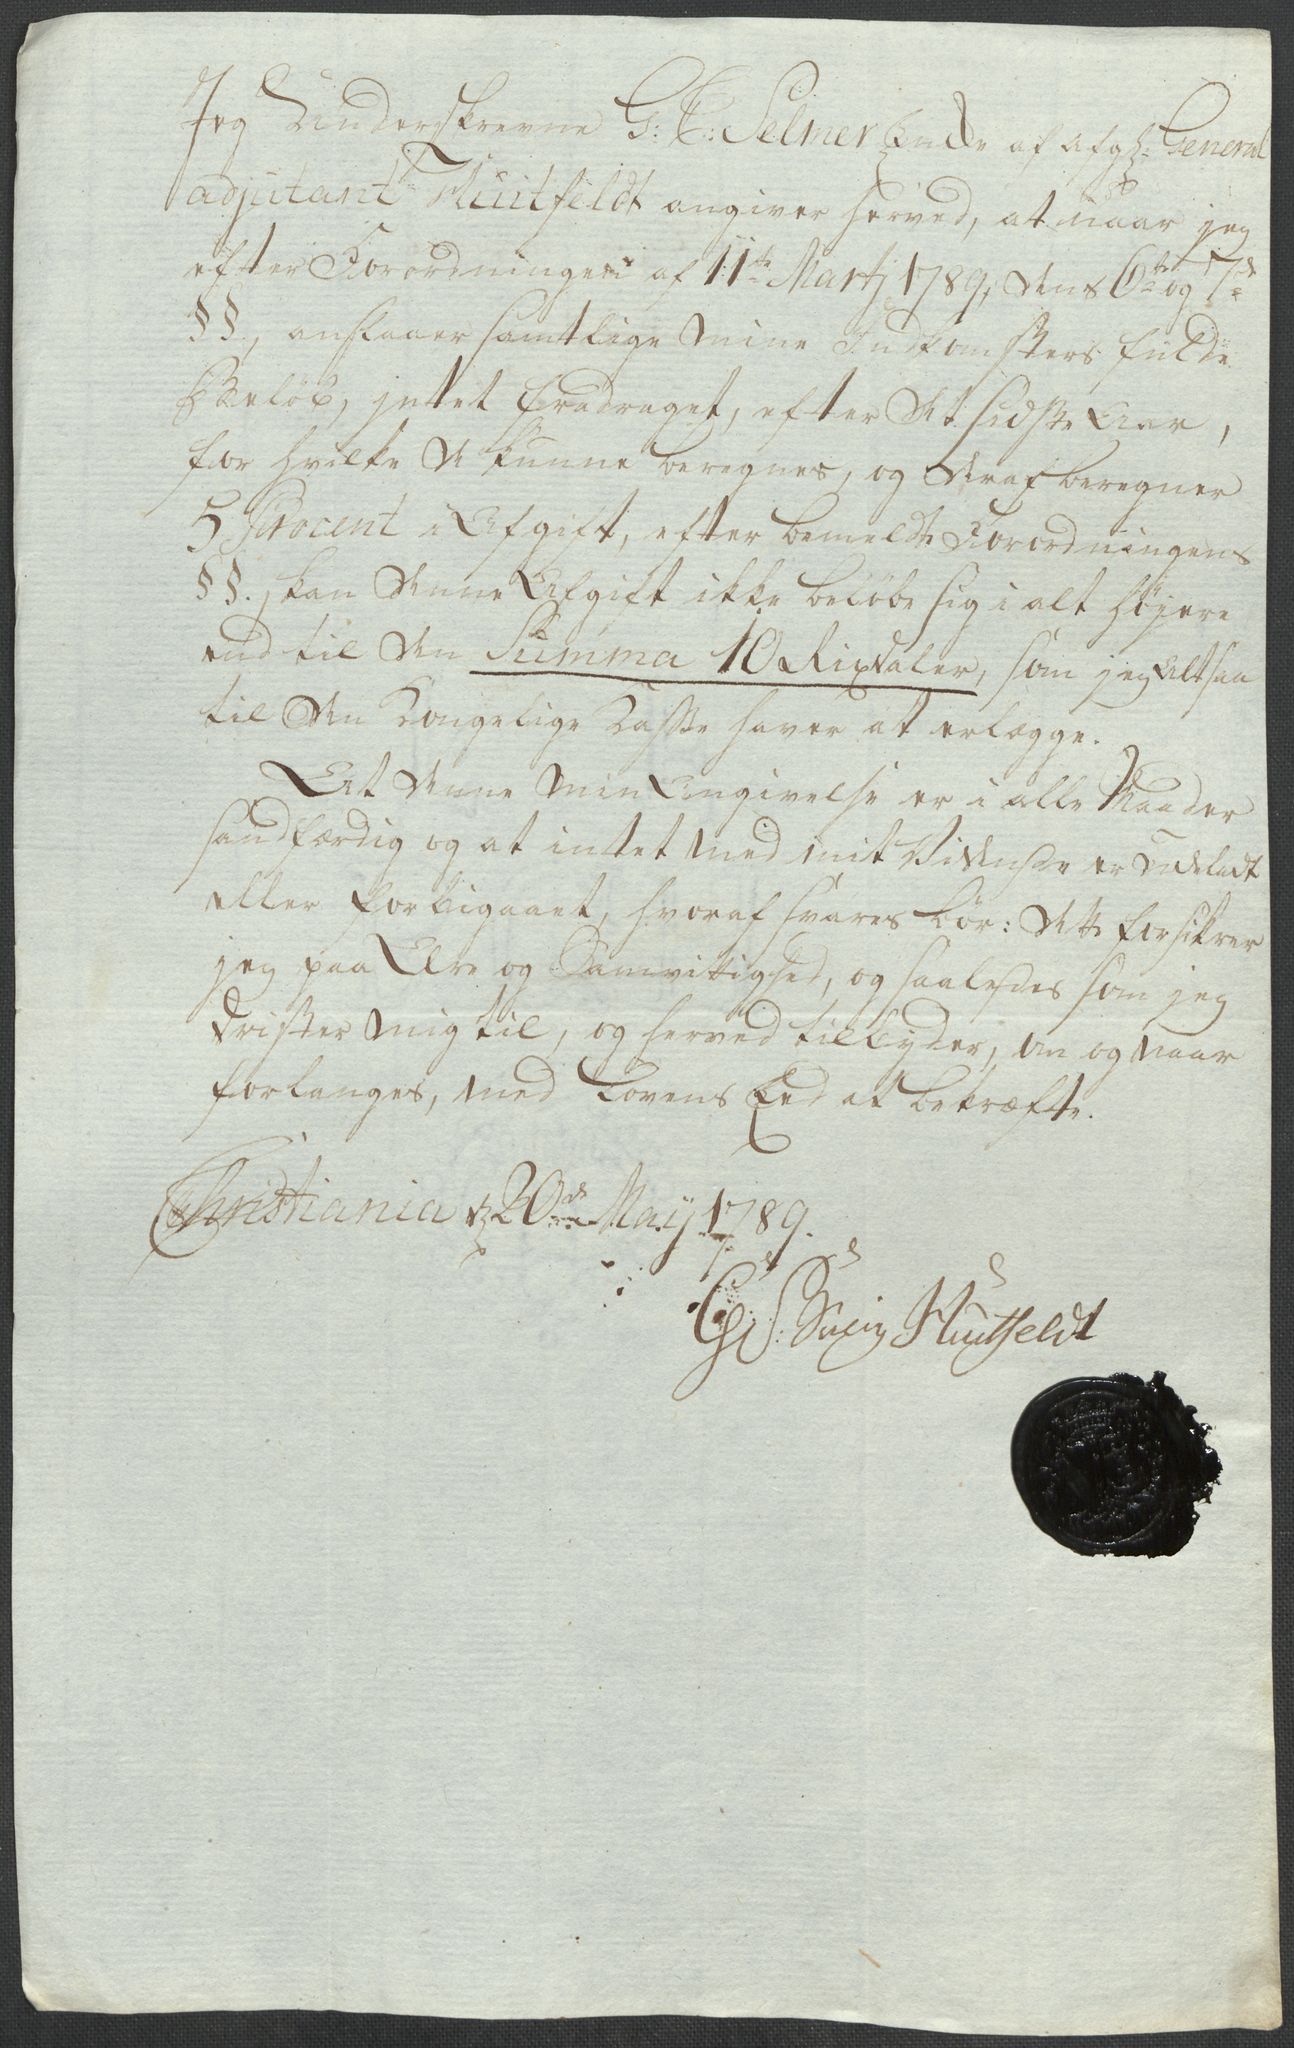 Jeg Underskrevne G: C: Selmer Encke af afg: General
adjutant Huitfeldt angiver herved, at naar jeg
efter Forordningen af 11te Martj 1789, dens 6te og 7de
§§., anslaaer samtlige mine Indkomsters fulde
Beløb, intet fradraget, efter det sidste Aar,
for hvilke de kunne beregnes, og deraf beregner
5 Procent i Afgift, efter bemeldte Forordningens
§§. kan denne Afgift ikke beløbe sig i alt høyere
end til den Summa 10 Rixdaler, som jeg altsaa
til den Kongelige Casse haver at erlægge.
At denne min Angivelse er i alle Maader
sandfærdig og at intet med mit Vidende er Udeladt
eller forbigaaet, hvoraf svares bør: dette forsikrer
jeg paa Ære og Samvittighed, og saaledes som jeg
drister mig til, og herved tilbyder, om og naar
forlanges, med Lovens Eed at bekræfte.
Christiania d 20de Maij 1789.
Huitfeldt